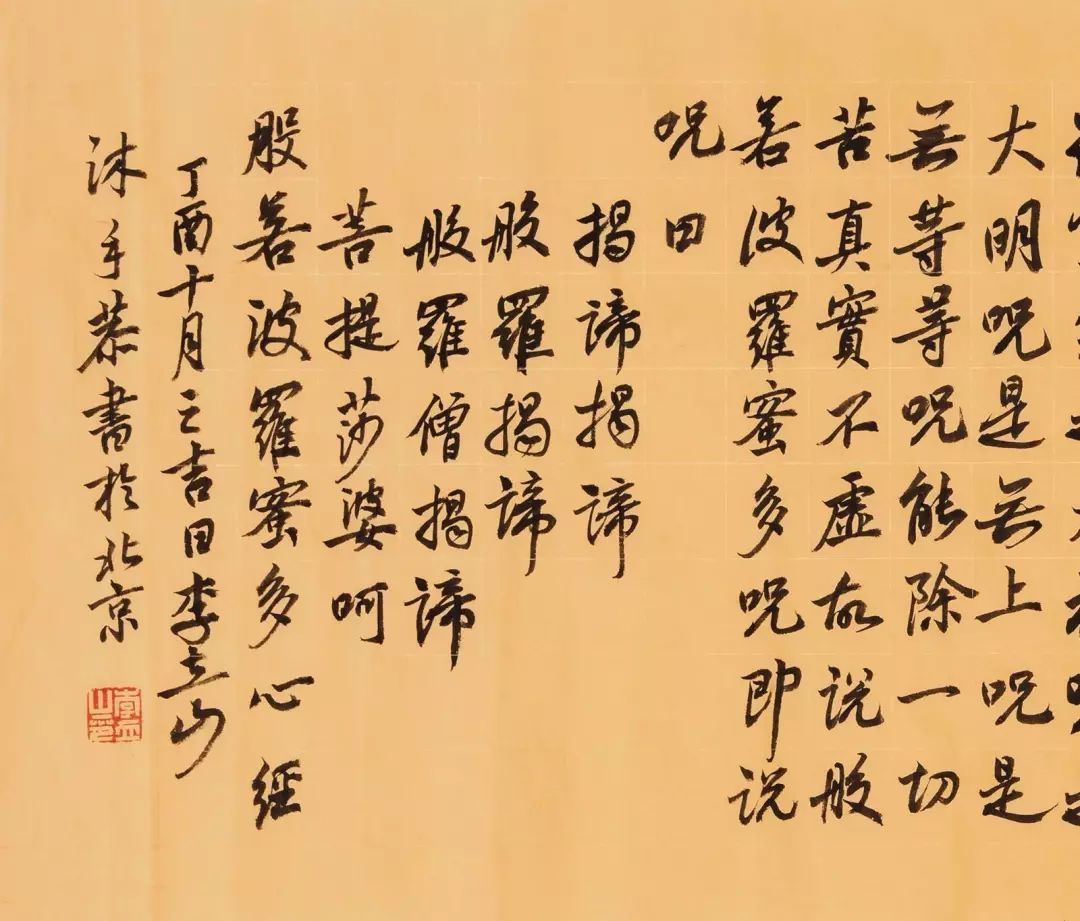 大明咒是无上咒是
無等等咒能除一切
苦真實不虛故說般
若波羅蜜多咒即說
咒曰
揭諦揭諦
般羅揭諦
般羅僧揭諦
菩提莎婆呵
般若波羅蜜多心經
丁酉十月之吉日李立山
沐手恭書於北京
李立山印